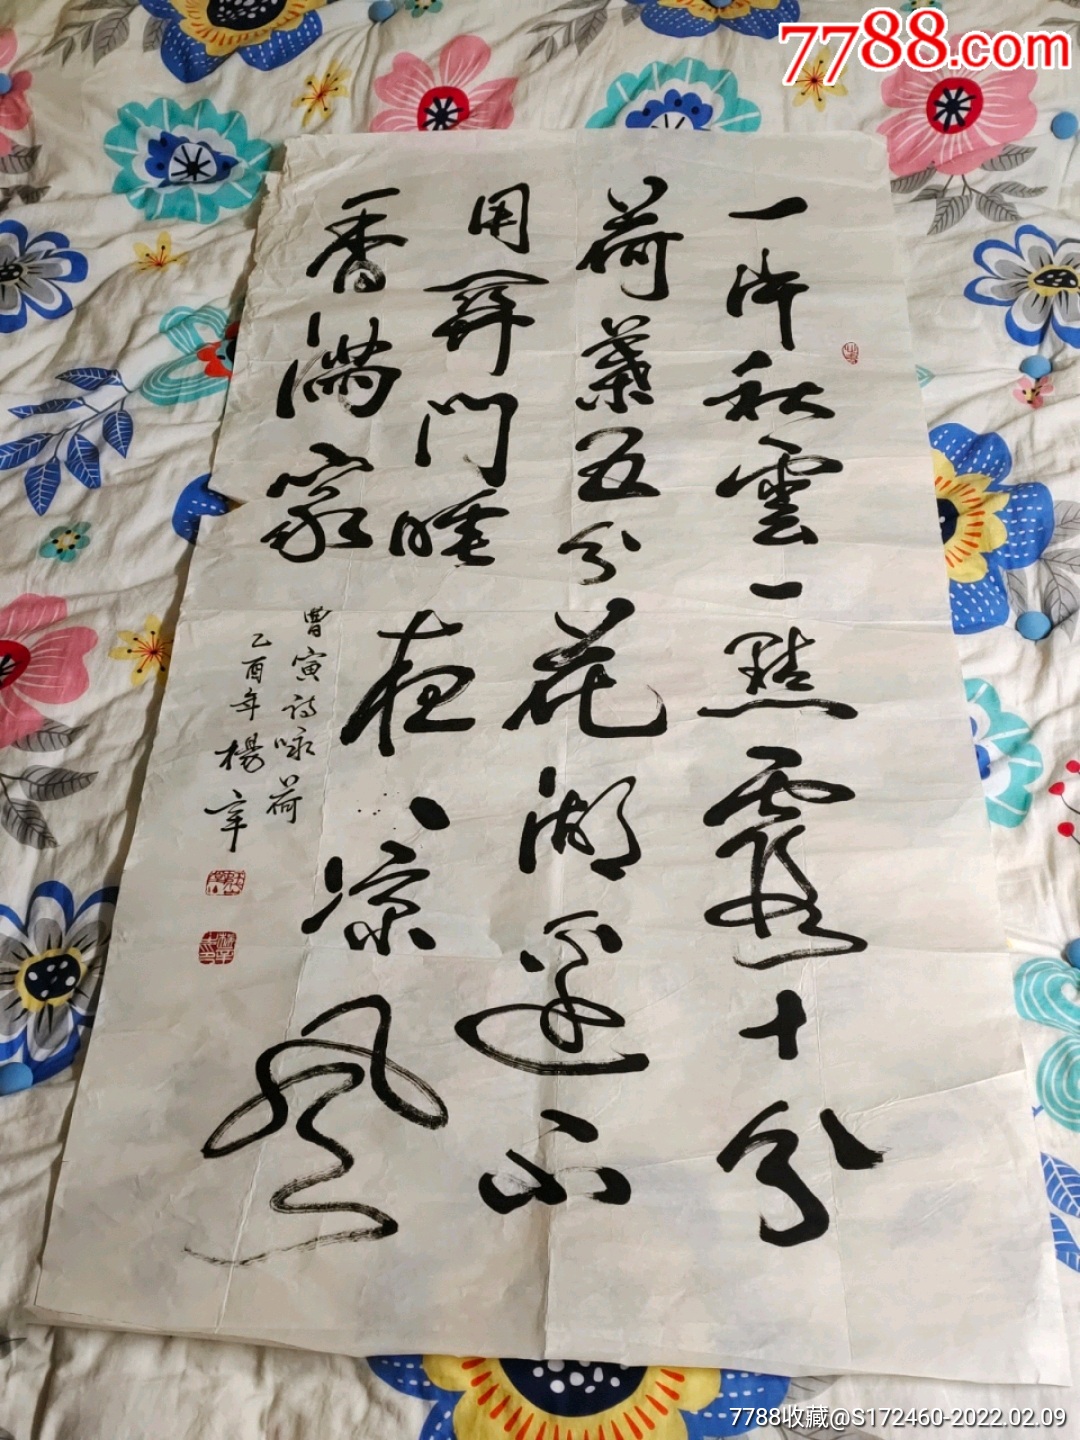 7788.com
一片秋雲一點霞十分
荷葉五分花湖邊不
用關門睡夜、凉風
香滿家
曹寅詩詠荷
乙酉年楊辛
7788收藏@S172460-2022.02.09